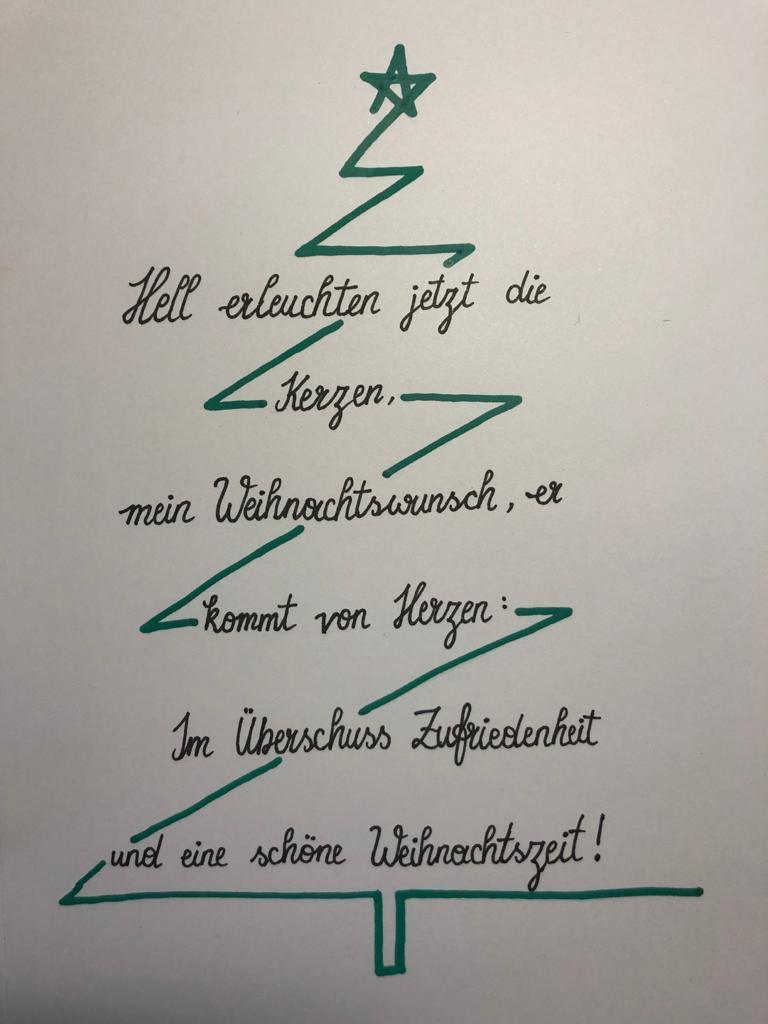 Hell erleuchten jetzt die
Kerzen,
mein Weihnachtswunsch, er
kommt von Herzen:
Im Überschuss Zufriedenheit
und eine schöne Weihnachtszeit!